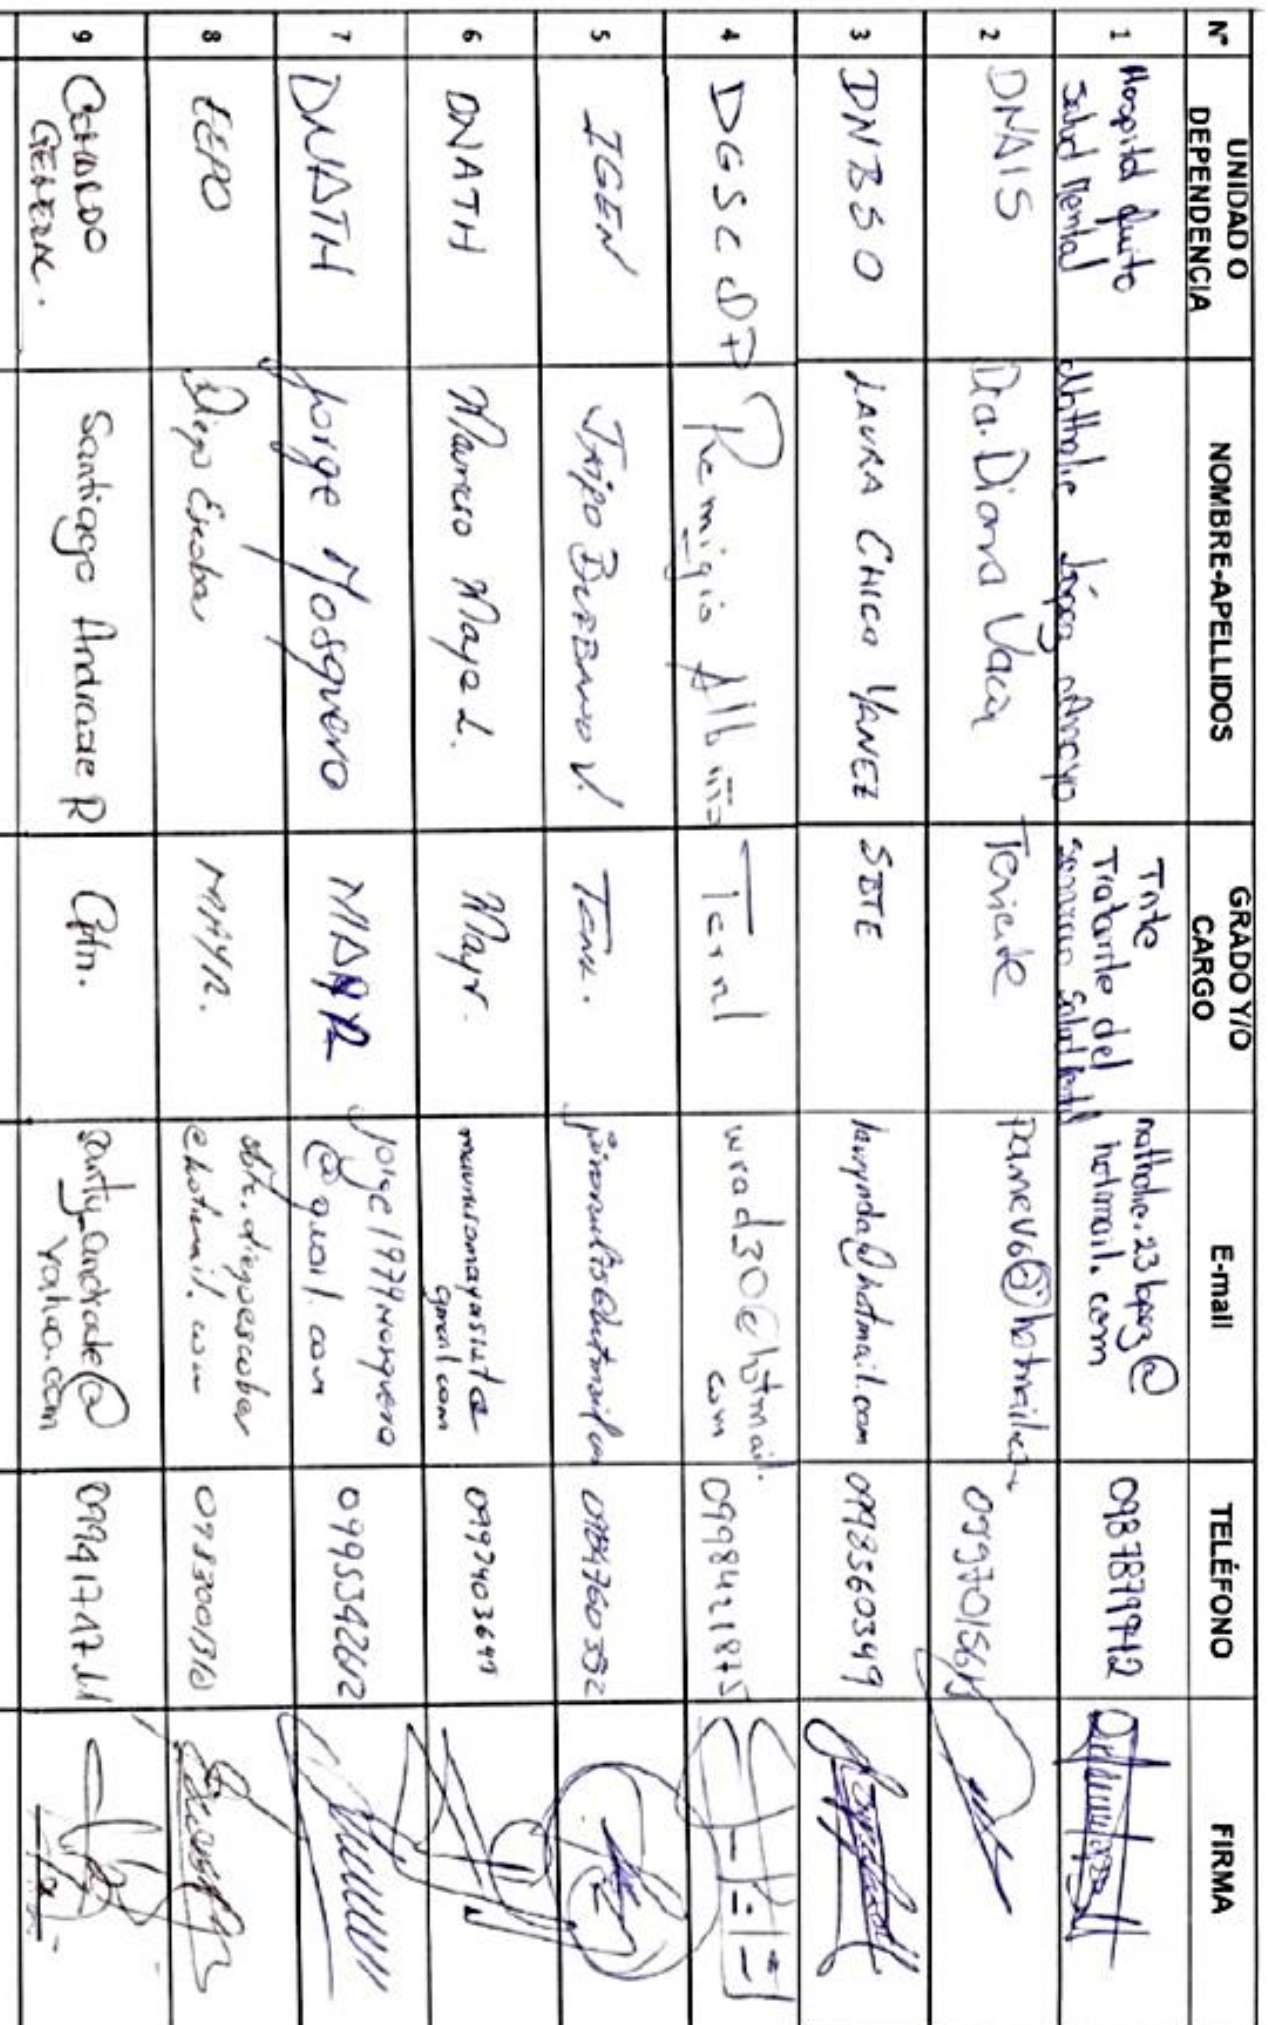 N° UNIDAD O DEPENDENCIA NOMBRE-APELLIDOS GRADO Y/O CARGO E-mail TELÉFONO FIRMA
1 Hospital Quito Salud Mental Nathalie López Arroyo Tnte Tratante del Servicio Salud Mental nathalie.23lopez@hotmail.com 0987879912
2 DNAIS Dra. Diana Vaca Teniente
3 DNBSO LAURA CHICO YANEZ SBTE laurynda@hotmail.com 0983560349
4 DGSCOP Remigio Albiño Tcrnl wrad30@hotmail.com 0998421875
5 IGEN JAIRO BURBANO V. TCNL. 0984760352
6 DNATH Mauricio Maya L. Mayr. 0997403699
7 DNATH Jorge Mosquera MAYR jorge1979mosquera@gmail.com 0995342612
8 Diego Escobar MAYR. sbte.diegoescobar@hotmail.com
9 COMANDO GENERAL. Santiago Andrade R Cptn. santy_andrade@yahoo.com